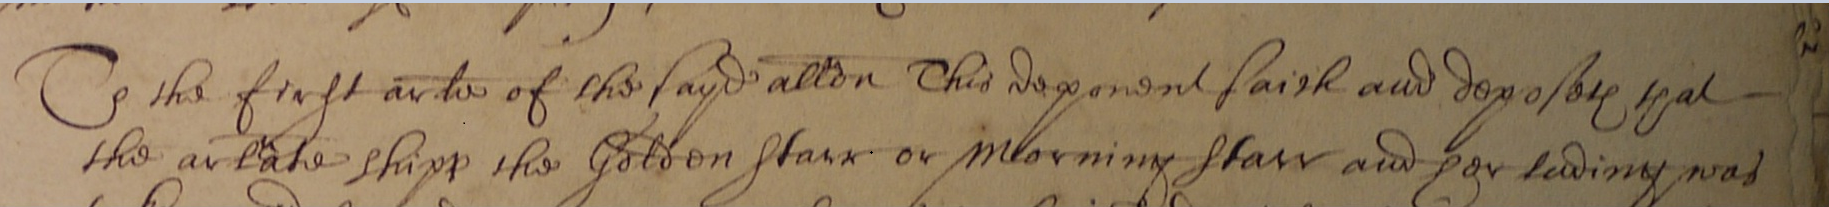 To the first arle of the sayd allon This deponent saith and deposeth that
the arlate shipp the Golden Starr or Morning Starr and her lading was